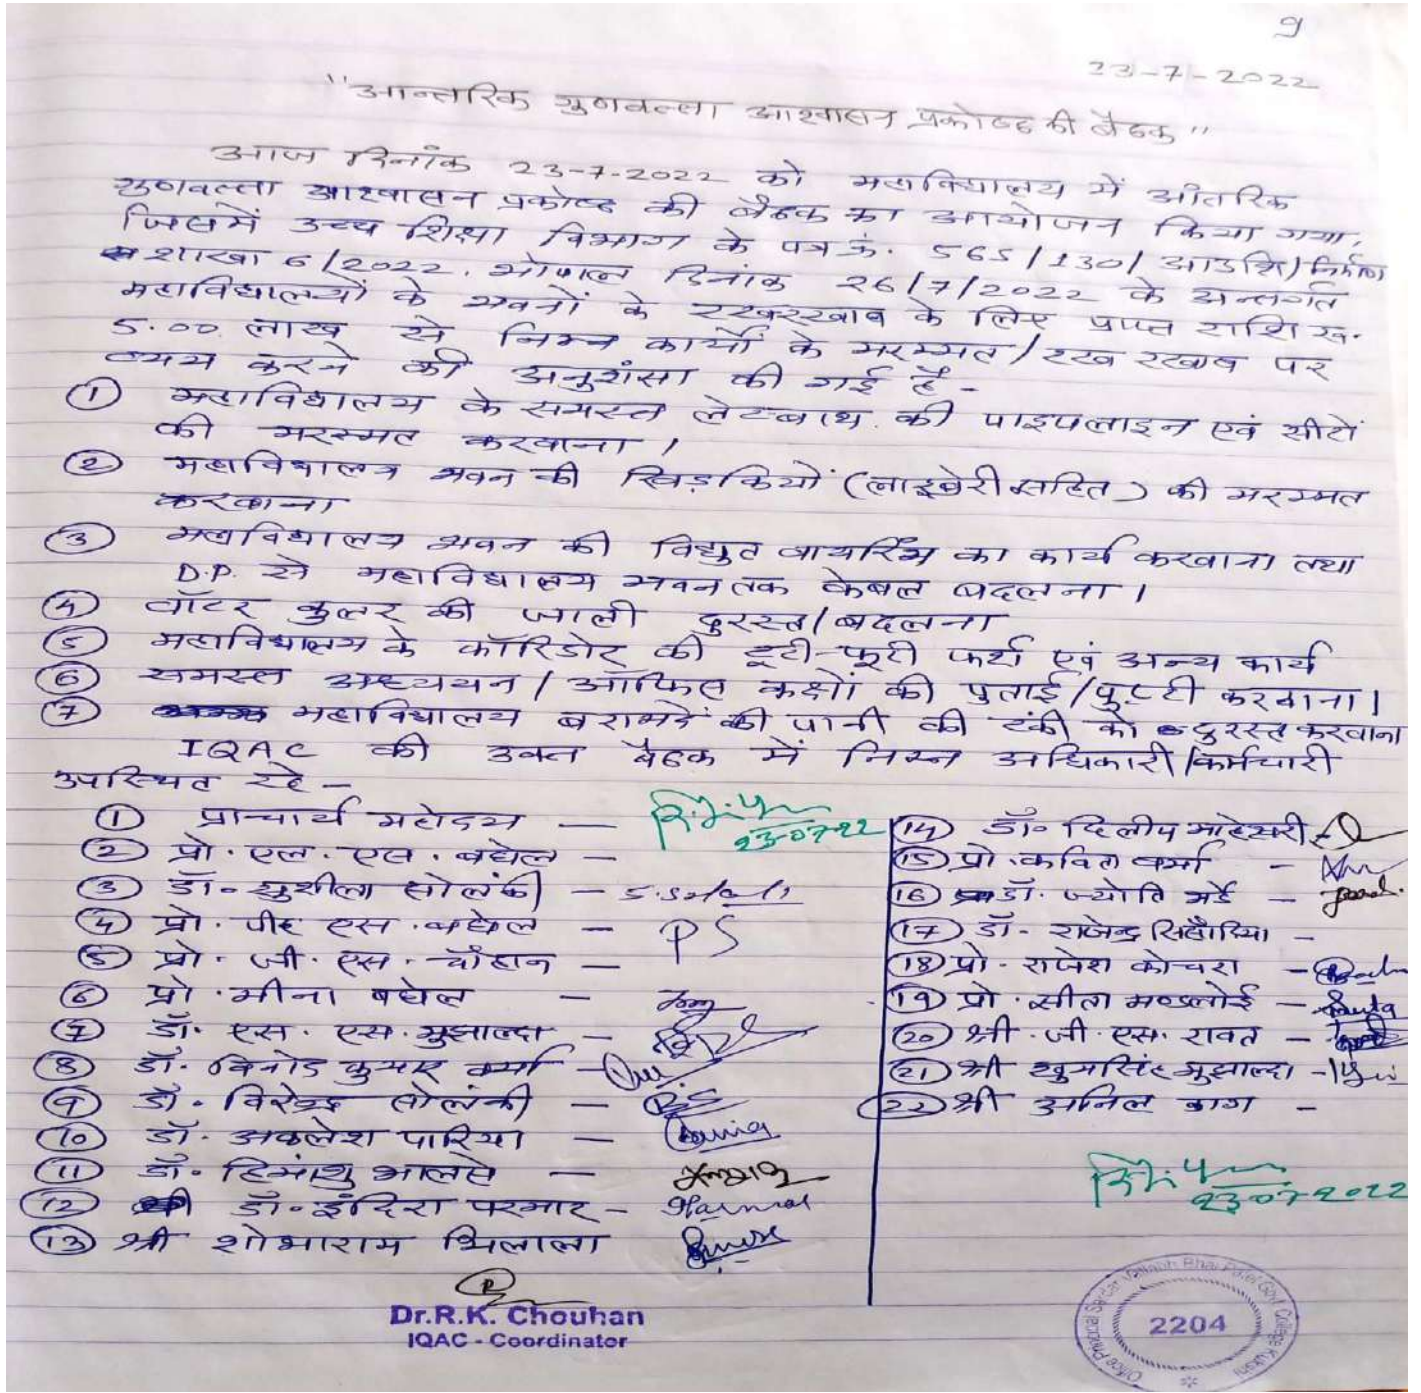 9
23-7-2022
"आन्तरिक गुणवत्ता आश्वासन प्रकोष्ठ की बैठक"
आज दिनांक 23-7-2022 को महाविद्यालय में आंतरिक
गुणवत्ता आश्वासन प्रकोष्ठ की बैठक का आयोजन किया गया,
जिसमें उच्च शिक्षा विभाग के पत्र क्रं. 565/130/आउशि/निर्माण
शाखा 6/2022. भोपाल दिनांक 26/7/2022 के अन्तर्गत
महाविद्यालयों के भवनों के रखरखाव के लिए प्राप्त राशि रू.
5.00 लाख से निम्न कार्यों के मरम्मत/रख रखाव पर
व्यय करने की अनुशंसा की गई है -
① महाविद्यालय के समस्त लेटबाथ की पाइपलाइन एवं सीटों
की मरम्मत करवाना।
② महाविद्यालय भवन की खिड़कियों (लाइब्रेरी सहित) की मरम्मत
करवाना
③ महाविद्यालय भवन की विद्युत वायरिंग का कार्य करवाना तथा
D.P. से महाविद्यालय भवन तक केबल बदलना।
④ वॉटर कुलर की जाली दुरस्त/बदलना
⑤ महाविद्यालय के कॉरिडोर की टूटी-फूटी फर्श एवं अन्य कार्य
⑥ समस्त अध्ययन/ऑफिस कक्षों की पुताई/पुट्टी करवाना।
⑦ महाविद्यालय बरामदें की पानी की टंकी को दुरस्त करवाना
IQAC की उक्त बैठक में निम्न अधिकारी/कर्मचारी
उपस्थित रहे -
① प्राचार्य महोदय - 23-07-22
② प्रो. एल. एस. बघेल -
③ डॉ. सुशीला सोलंकी -
④ प्रो. पी. एस. बघेल - PS
⑤ प्रो. जी. एस. चौहान -
⑥ प्रो. मीना बघेल -
⑦ डॉ. एस. एस. मुझाल्दा -
⑧ डॉ. विनोद कुमार वर्मा -
⑨ डॉ. विरेन्द्र सोलंकी -
⑩ डॉ. अकलेश पारिया -
⑪ डॉ. हिमांशु भालसे -
⑫ डॉ. इंदिरा परमार -
⑬ श्री शोभाराम भिलाला
⑭ डॉ. दिलीप माहेसरी -
⑮ प्रो. कविता वर्मा -
⑯ डॉ. ज्योति मर्दे -
⑰ डॉ. राजेन्द्र सिसौरिया -
⑱ प्रो. राजेश कोचरा -
⑲ प्रो. सीता मण्डलोई -
⑳ श्री. जी. एस. रावत -
㉑ श्री खुमसिंह मुझाल्दा -
㉒ श्री अनिल बाग -
23-07-2022
Dr.R.K. Chouhan
IQAC - Coordinator
Office Principal Sardar Vallabh Bhai Patel Govt. College Kukshi
2204